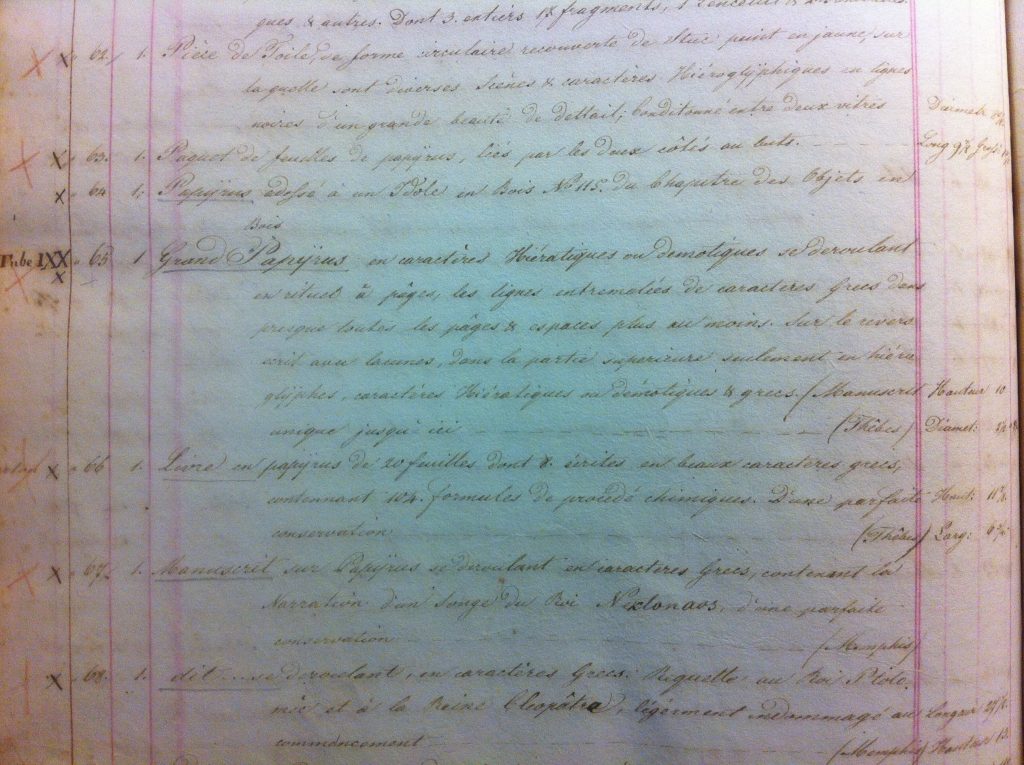 ques & autres. Dont 3. entiers 18 fragments,
X X 62. 1. Pièce de Toile, de forme circulaire recouverte de Stuc peint en jaune, sur
laquelle sont diverses Scènes & caractères Hiéroglÿphiques en lignes
noires d'un grande beauté de dettail; Conditonné entre deux vitres Diametr
X X 63. 1. Paquet de feuilles de papÿrus, liés par les duex côtés au buts. Long
X 64 1. Papÿrus adossé à un Idole en Bois No. 115. du Chapitre des Objets en
Bois
Tube IXX X 65 1. Grand Papÿrus en caractères Hiératiques ou demotiques se deroulant
en rituel à pâges, les lignes entremelées de caractères Grecs dans
presque toutes les pâges & espaces plus au moins. Sur le revers
ecrit avec lacunes, dans la partie superieure seulement en hiéro
glÿphes, caractères Hiératiques ou démotiques & grecs. (Manuscrit Hauteur 10
unique jusqu'ici (Thèbes) Diamet:
X 66 1. Livre en papÿrus de 20 feuilles dont 8. écrites en beaux caracteres grecs,
contennant 104. formules de procédé chimiques. D'une parfaite Haut:
conservation (Thèbes) Larg:
X X 67. 1. Manuscrit sur Papÿrus se deroulant en caractères Grecs, contenant la
Narration d'un Songe du Roi Nextonaos, d'une parfaite
conservation (Memphis)
X 68. 1. dit se deroulant, en caractères Grecs. Requette au Roi Ptole
mée et à la Reine Cleopâtre, légérment indommagé au Longueur
commencement (Memphis) Hauteur